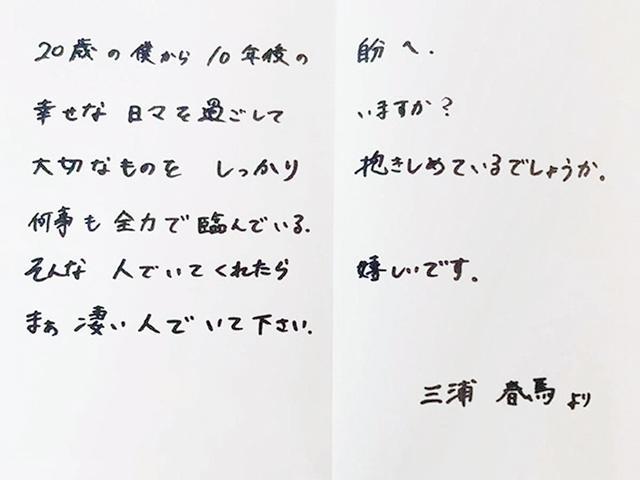 20歳の僕から10年後の自分へ.
幸せな日々を過ごしていますか?
大切なものをしっかり抱きしめているでしょうか。
何事も全力で臨んでいる.
そんな人でいてくれたら嬉しいです。
まぁ凄い人でいて下さい.
三浦春馬より